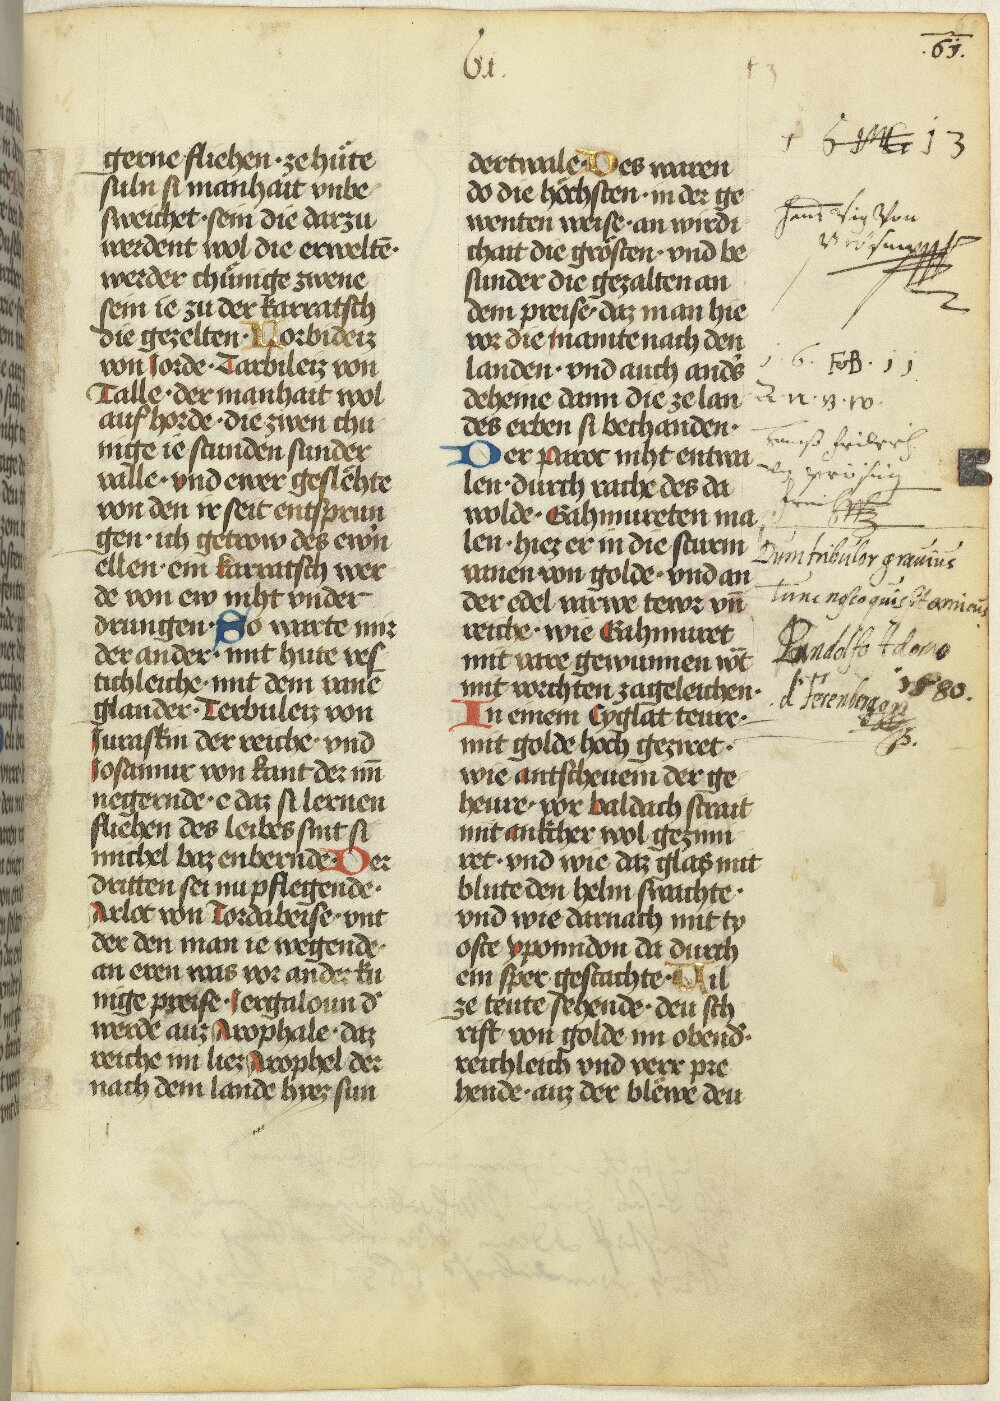 61.
.61.
gerne fliehen · ze hůte
suln si manhait vnbe
sweichet · sein die darzu
werdent wol die erweltē ·
werder chůnige zwene
sein ie zu der karratsch
die gezelten · Korbideiz
von Jorde · Tarbileiz von
Talle · der manhait wol
auf horde · die zwen chu
nige ie stunden sunder
valle · vnd ewer geslehte
von den ir seit entsprun
gen · ich getrow des ewn
ellen · ein karratsch wer
de von ew niht vnder
drungen · So warte mir
der ander · mit hute ves
tichleiche · mit dem vane
glander · Terbuleiz von
Juraskin der reiche · vnd
Josamur von kant der mī
negernde · e daz si lernen
fliehen des leibes sint si
michel baz enbernde · Der
dritten sei nu pflegende ·
Arlot von Tordabeise · vnt
der den man ie wegende ·
an eren was vor ander ku
nige preise · Jergaloun d
werde auz Arophale · daz
reiche im liez Arophel der
nach dem lande hiez sun
dertwale · Des waren
do die hőchsten · in der ge
wenten weise · an wirdi
chait die grősten · vnd be
sunder die gezalten an
dem preise · daz man hie
vor die namte nach den
landen · vnd auch anders
deheine dann die ze lan
des erben si bechanden ·
Der paroc niht entwa
len · durch rache des da
wolde · Gahmureten ma
len · hiez er in die sturm
vanen von golde · vnd an
der edel varwe tewr vn̄
reiche · wie Gahmuret
mit vare gewunnen wt
mit vorchten zageleichen ·
In einem Cyglat teure ·
mit golde hoch geziret ·
wie antschevein der ge
heure · vor baldach strait
mit ankher wol gezimi
ret · vnd wie daz glas mit
blute den helm swachte ·
vnd wie darnach mit ty
oste yponidon da durch
ein sper gestachte · Vil
ze teute sehende · deu sch
rift von golde im obend ·
reichleich vnd verr pre
hende · auz der blewe deu
13
Hans Sig Von
1 · 6 · FSB · 11
Hanß Fridrich
Dum tribulor grauius
tunc
Randolfo Adamo
1580.